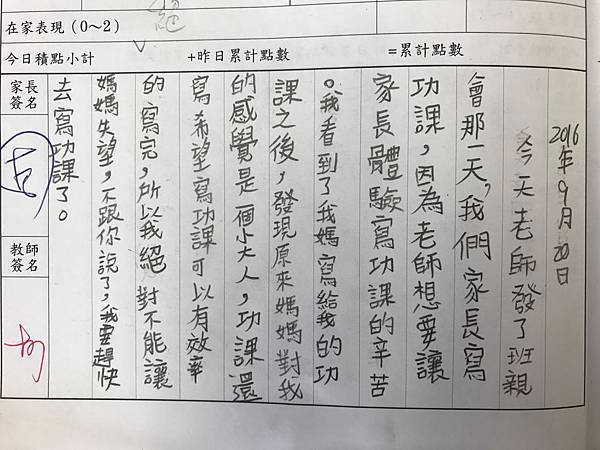 絕
在家表現（0～2）
今日積點小計
+昨日累計點數
=累計點數
2016年9月20日
今天老師發了班親
會那一天，我們家長寫
功課，因為老師想要讓
家長體驗寫功課的辛苦
。我看到了我媽寫給我的功
課之後，發現原來媽媽對我
的感覺是一個小大人，功課還
寫希望寫功課可以有效率
的寫完，所以我絕對不能讓
媽媽失望，不跟你說了，我要趕快
去寫功課了。
家長
簽名
教師
簽名